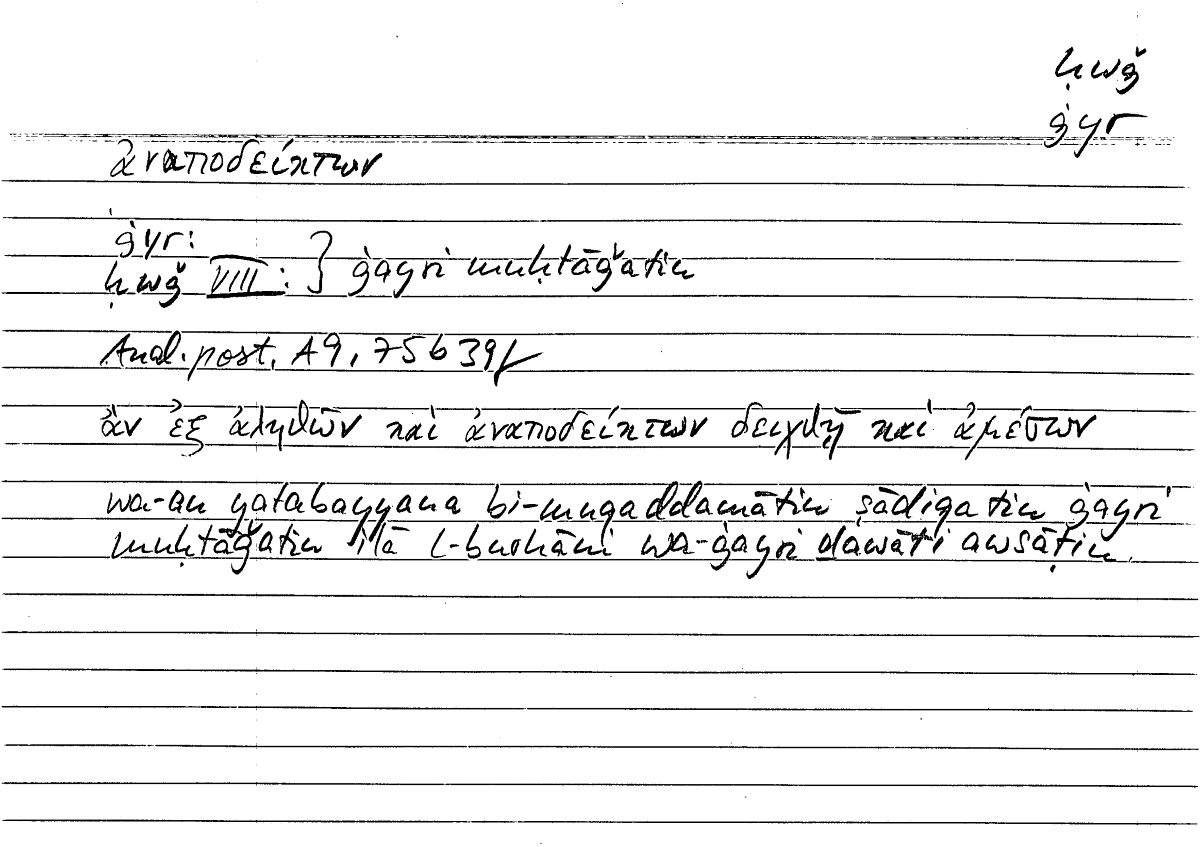 ḥwǧ
ġyr
ἀναποδείκτων
ġyr:
ḥwǧ VIII: } ġayri muḥtāǧatin
Anal. post. A9, 75b39f
ἂν ἐξ ἀληθῶν καὶ ἀναποδείκτων δειχθῇ καὶ ἀμέσων
wa-an yatabayyana bi-muqaddamātin ṣādiqatin ġayri
muḥtāǧatin ilā l-burhāni wa-ġayri ḏawāti awsāṭin.